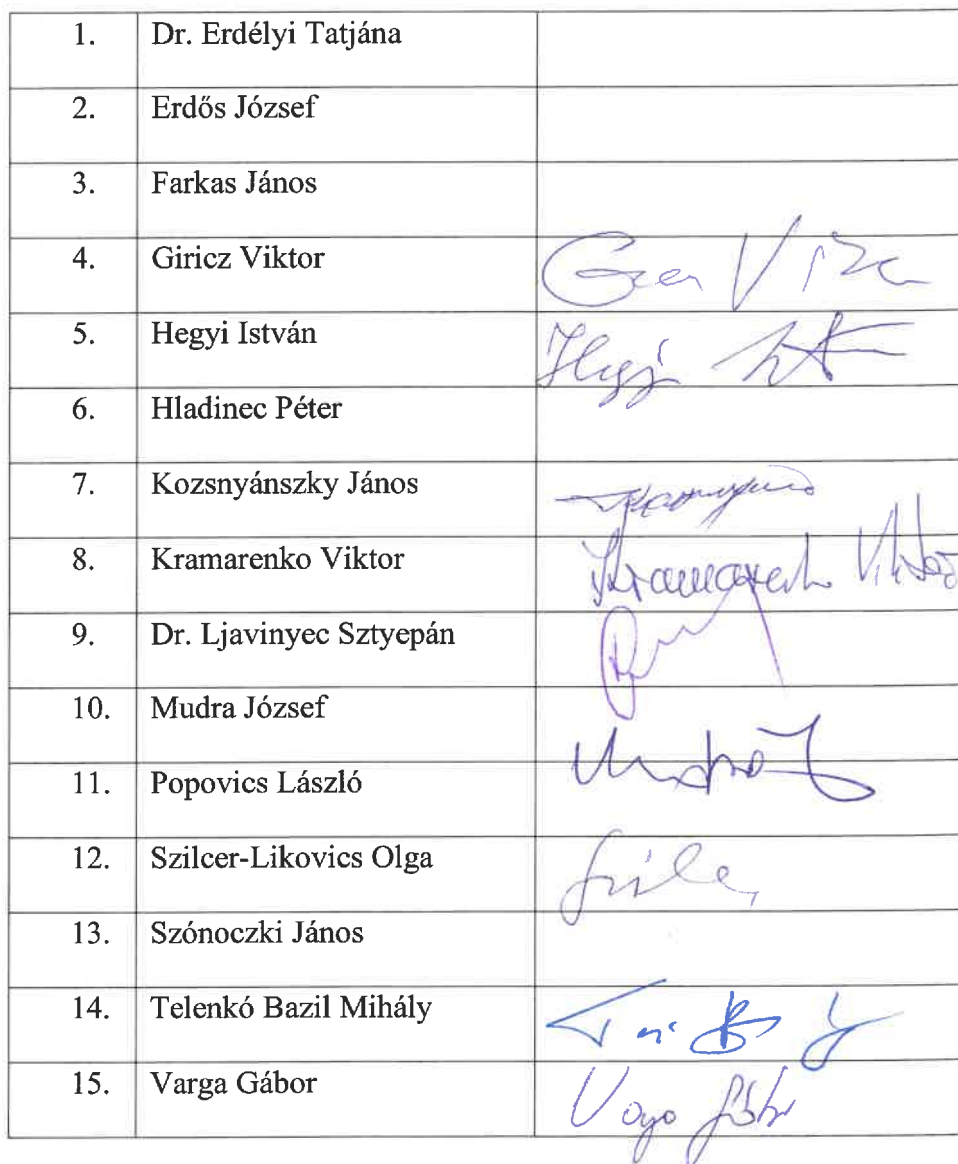 1. Dr. Erdélyi Tatjána
2. Erdős József
3. Farkas János
4. Giricz Viktor
5. Hegyi István
6. Hladinec Péter
7. Kozsnyánszky János
8. Kramarenko Viktor
9. Dr. Ljavinyec Sztyepán
10. Mudra József
11. Popovics László
12. Szilcer-Likovics Olga
13. Szónoczki János
14. Telenkó Bazil Mihály
15. Varga Gábor